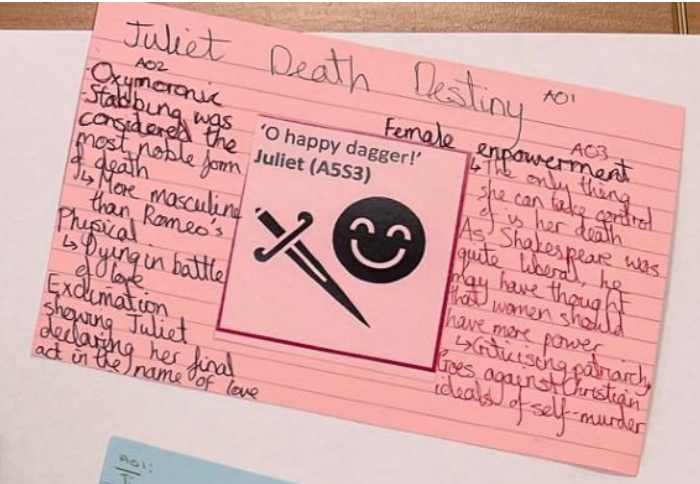 Juliet Death Destiny
AO1
AO2
·Oxymoronic
·Stabbing was
considered the
most noble form
of death
↳ More masculine
than Romeo's
Physical
↳ Dying in battle
of love
Exclimation
showing Juliet
declaring her final
act in the name of love
'O happy dagger!'
Juliet (A5S3)
Female empowerment
AO3
↳ The only thing
she can take control
of is her death
As Shakespeare was
quite liberal, he
may have thought
that women should
have more power
↳ Criticising patriarchy
Goes against Christian
ideals of self-murder
AO1: